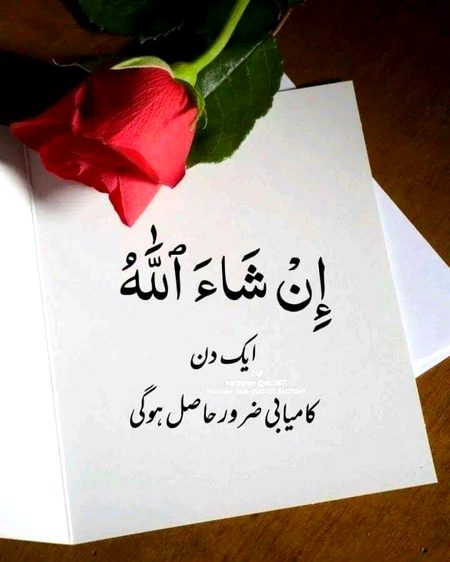 إِنْ شَاءَ ٱللَّٰهُ
ایک دن
کامیابی ضرور حاصل ہوگی